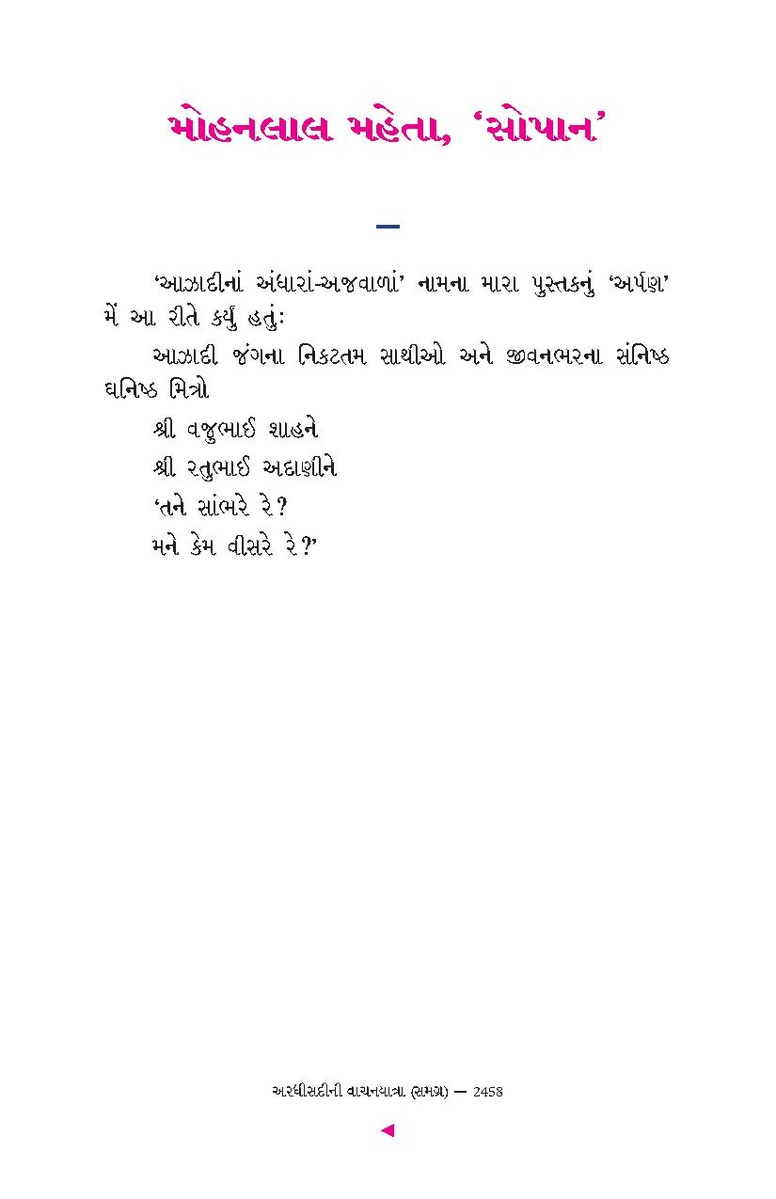 મોહનલાલ મહેતા, ‘સોપાન’
‘આઝાદીનાં અંધારાં-અજવાળાં’ નામના મારા પુસ્તકનું ‘અર્પણ’
મેં આ રીતે કર્યું હતું:
આઝાદી જંગના નિકટતમ સાથીઓ અને જીવનભરના સંનિષ્ઠ
ઘનિષ્ઠ મિત્રો
શ્રી વજુભાઈ શાહને
શ્રી રતુભાઈ અદાણીને
‘તને સાંભરે રે?
મને કેમ વીસરે રે?’
અરધીસદીની વાચનયાત્રા (સમગ્ર) — 2458